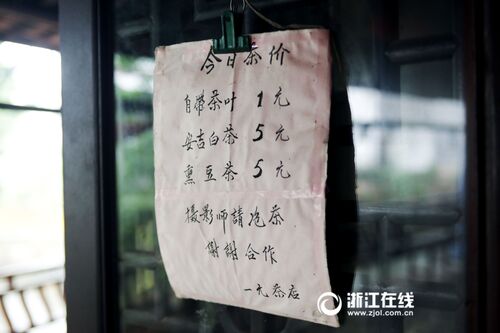 今日茶价
自带茶叶 1元
安吉白茶 5元
熏豆茶 5元
摄影师請泡茶
谢謝合作
一元茶店
浙江在线
www.zjol.com.cn